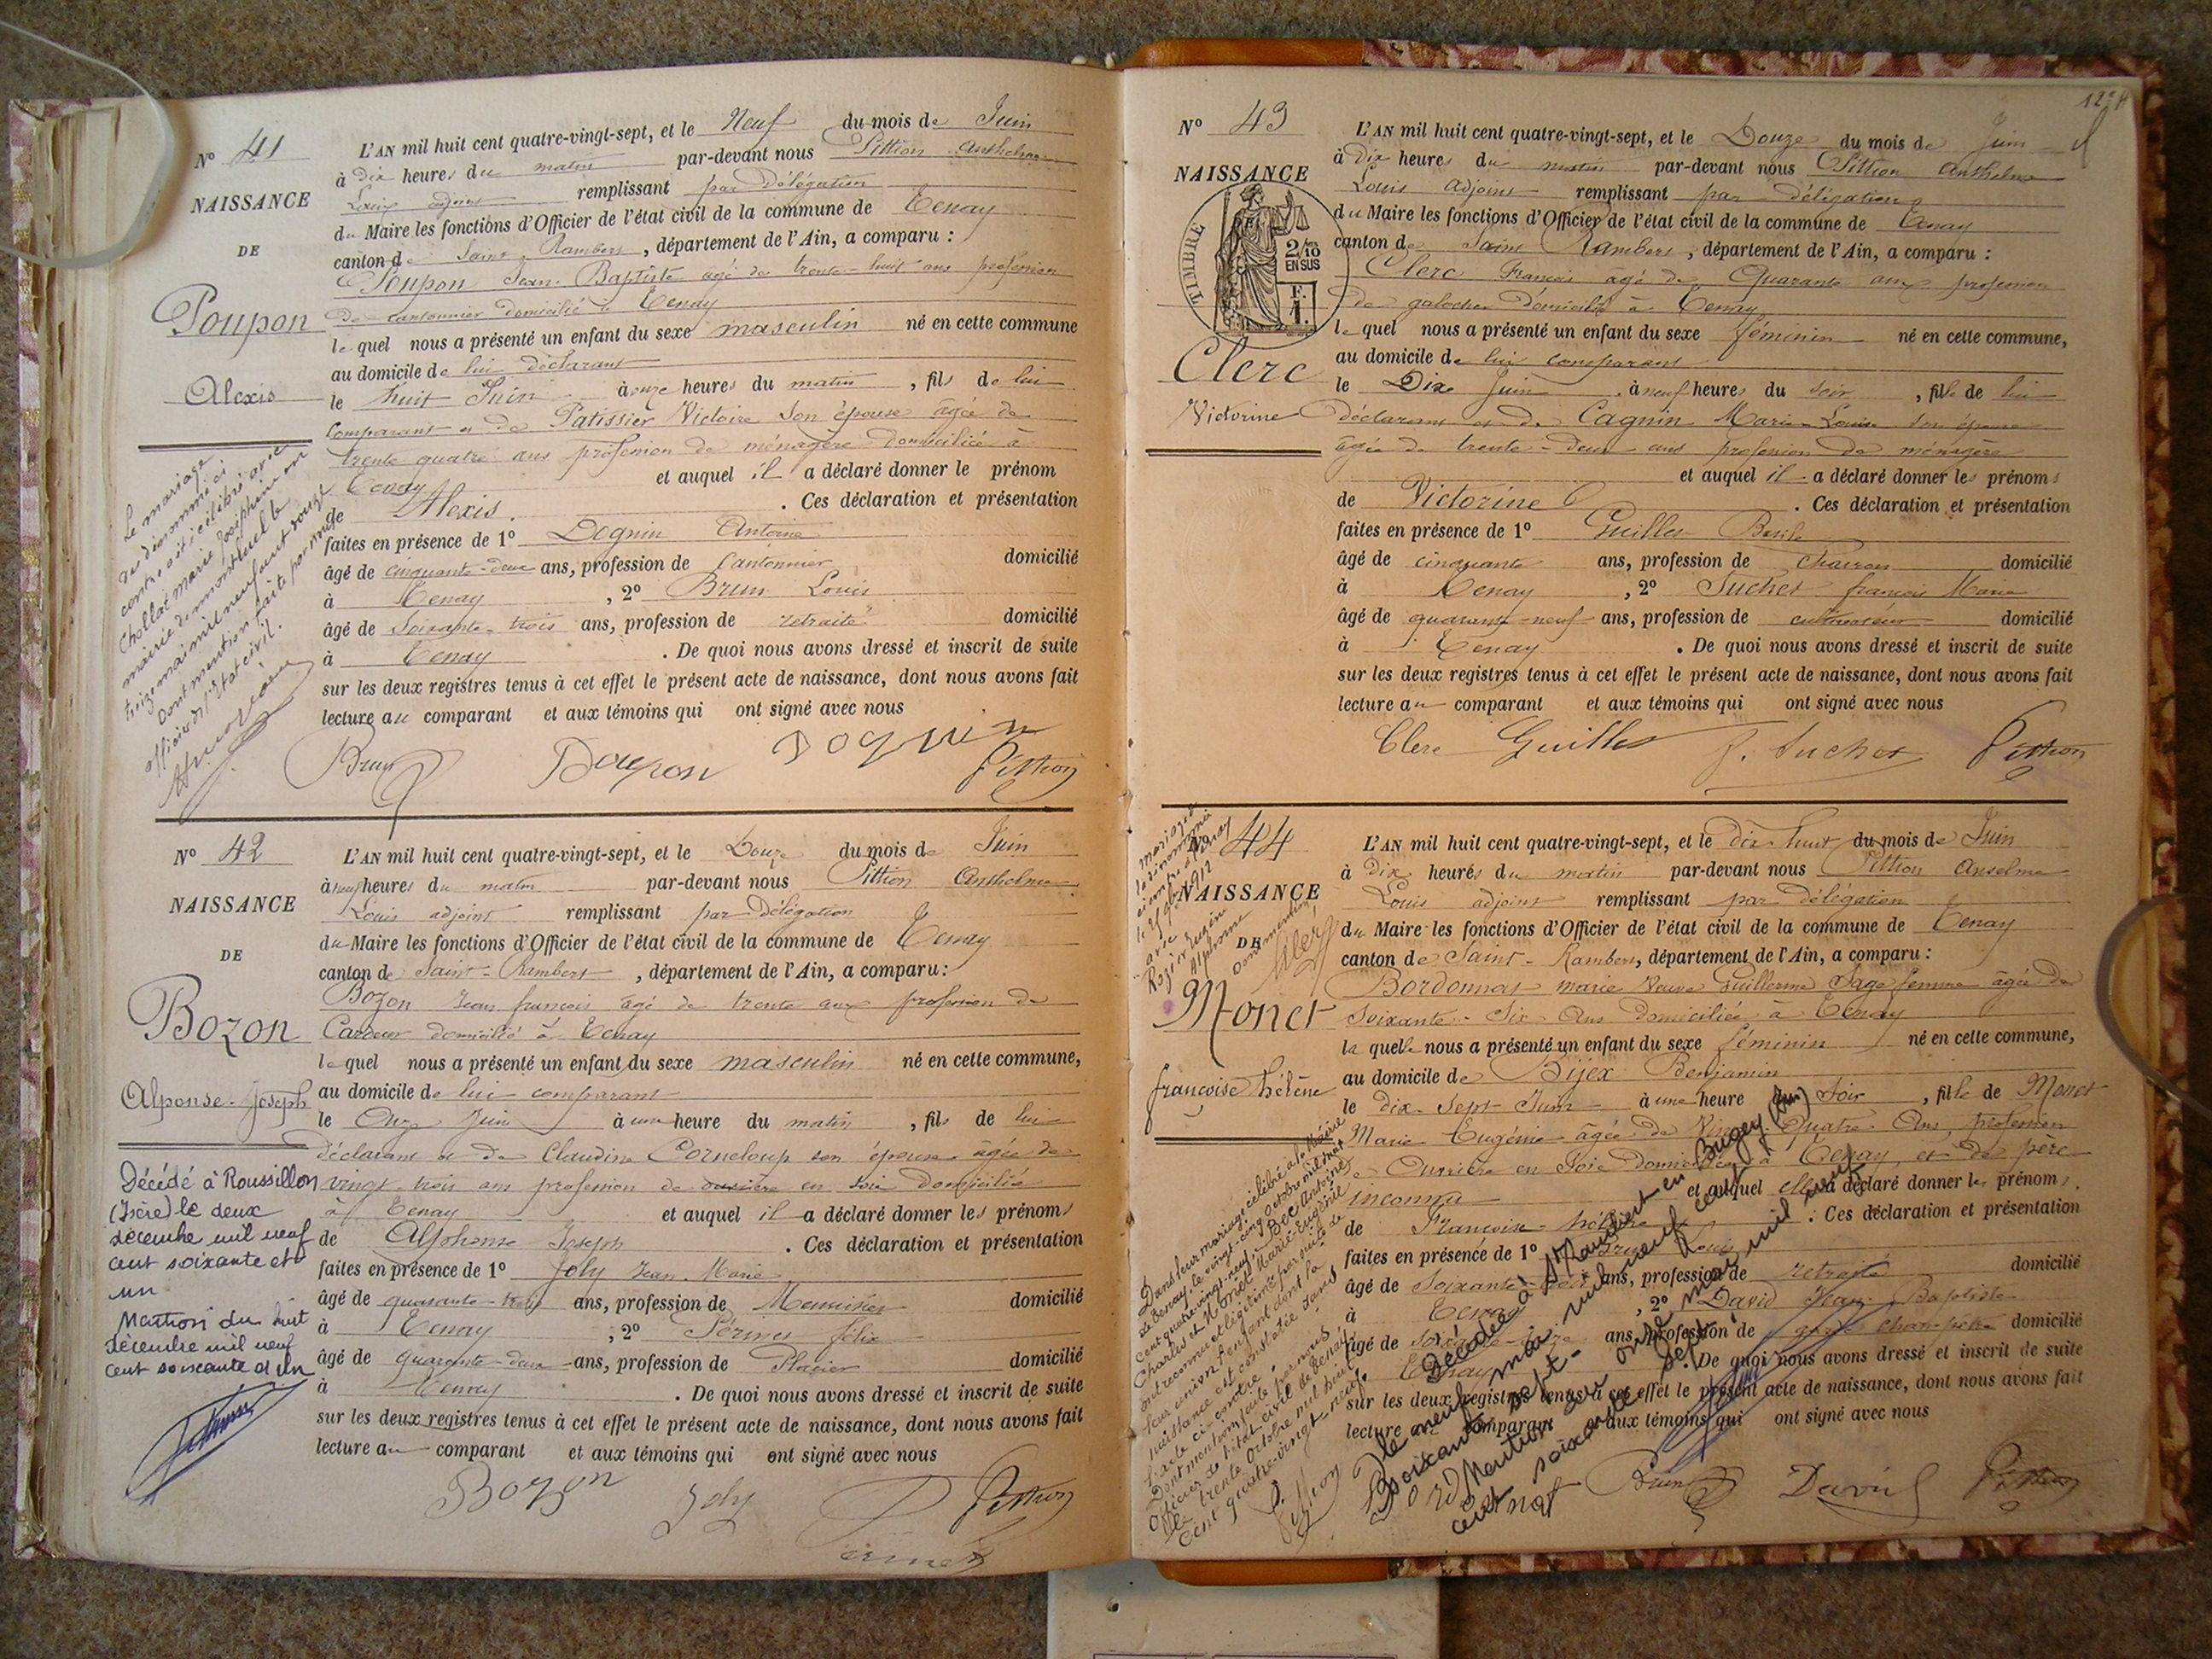 N° 41
NAISSANCE
DE
Poupon
Alexis
L'AN mil huit cent quatre-vingt-sept, et le Neuf du mois de Juin
à Dix heures du matin par-devant nous Pittion Anthelme
Louis adjoint remplissant par Délégation
du Maire les fonctions d'Officier de l'état civil de la commune de Tenay
canton de Saint-Rambert, département de l'Ain, a comparu :
Poupon Jean-Baptiste agé de trente-huit ans profession
de cantonnier domicilié à Tenay
lequel nous a présenté un enfant du sexe masculin né en cette commune
au domicile de lui déclarant
le huit Juin à onze heures du matin, fils de lui
comparant et de Patissier Victoire son épouse âgée de
trente quatre ans profession de ménagère domiciliée à
Tenay et auquel il a déclaré donner le prénom
de Alexis. Ces déclaration et présentation
faites en présence de 1° Dognin Antoine
âgé de cinquante-deux ans, profession de Cantonnier domicilié
à Tenay, 2° Brun Louis
âgé de Soixante-trois ans, profession de retraité domicilié
à Tenay. De quoi nous avons dressé et inscrit de suite
sur les deux registres tenus à cet effet le présent acte de naissance, dont nous avons fait
lecture au comparant et aux témoins qui ont signé avec nous
Brun Poupon Dognin Pittion
Le mariage
du dénommé ci-
contre a été célébré avec
Chollat Marie Joséphine en
mairie de montluel le
treize mai mil neuf cent douze
Dont mention faite par nous
officier de l'Etat civil.
N° 42
NAISSANCE
DE
Bozon
Alponse-Joseph
L'AN mil huit cent quatre-vingt-sept, et le Douze du mois de Juin
à neuf heures du matin par-devant nous Pittion Anthelme
Louis adjoint remplissant par Délégation
du Maire les fonctions d'Officier de l'état civil de la commune de Tenay
canton de Saint-Rambert, département de l'Ain, a comparu :
Bozon Jean françois âgé de trente ans profession de
Cardeur domicilié à Tenay
lequel nous a présenté un enfant du sexe masculin né en cette commune,
au domicile de lui comparant
le Onze Juin à une heure du matin, fils de lui
déclarant et de Claudine Corneloup son épouse âgée de
vingt-trois ans profession de ouvrière en soie domicilié
à Tenay et auquel il a déclaré donner les prénoms
de Alphonse Joseph. Ces déclaration et présentation
faites en présence de 1° Joly Jean-Marie
âgé de quarante-trois ans, profession de Menuisier domicilié
à Tenay, 2° félix
âgé de quarante-deux ans, profession de domicilié
à Tenay. De quoi nous avons dressé et inscrit de suite
sur les deux registres tenus à cet effet le présent acte de naissance, dont nous avons fait
lecture au comparant et aux témoins qui ont signé avec nous
Bozon Joly Pittion
Décédé à Roussillon
(Isère) le deux
décembre mil neuf
cent soixante et
un
Mention du huit
décembre mil neuf
cent soixante et un
N° 43
NAISSANCE
TIMBRE
2/10
EN SUS
F.
1.
Clerc
Victorine
L'AN mil huit cent quatre-vingt-sept, et le Douze du mois de Juin
à dix heures du matin par-devant nous Pittion Anthelme
Louis Adjoint remplissant par délégation
du Maire les fonctions d'Officier de l'état civil de la commune de Tenay
canton de Saint Rambert, département de l'Ain, a comparu :
Clerc François âgé de Quarante ans profession
de galocher Domicilié à Tenay
lequel nous a présenté un enfant du sexe féminin né en cette commune,
au domicile de lui comparant
le Dix Juin à neuf heures du soir, fille de lui
déclarant et de Cagnin Marie-Louise son épouse
âgée de trente-deux ans profession de ménagère
et auquel il a déclaré donner les prénoms
de Victorine. Ces déclaration et présentation
faites en présence de 1° Guillet Basile
âgé de cinquante ans, profession de charron domicilié
à Tenay, 2° Suchet françois Marie
âgé de quarante-neuf ans, profession de cultivateur domicilié
à Tenay. De quoi nous avons dressé et inscrit de suite
sur les deux registres tenus à cet effet le présent acte de naissance, dont nous avons fait
lecture au comparant et aux témoins qui ont signé avec nous
Clerc Guillet F. Suchet Pittion
N° 44
NAISSANCE
DE
Monet
françoise hélène
L'AN mil huit cent quatre-vingt-sept, et le dix-huit du mois de Juin
à Dix heures du matin par-devant nous Pittion Anselme
Louis adjoint remplissant par délégation
du Maire les fonctions d'Officier de l'état civil de la commune de Tenay
canton de Saint-Rambert, département de l'Ain, a comparu :
Bordonnat marie Veuve Guillerme Sage femme âgée de
Soixante-Six Ans Domiciliée à Tenay
laquelle nous a présenté un enfant du sexe féminin né en cette commune,
au domicile de Bijex Benjamin
le dix-Sept Juin à une heure du Soir, fille de Monet
Marie Eugénie âgée de Vingt-Quatre Ans, profession
de Ouvrière en Soie Domiciliée à Tenay et de père
inconnu et auquel elle a déclaré donner les prénoms
de Francoise-hélène. Ces déclaration et présentation
faites en présence de 1° Brun Louis
âgé de Soixante-trois ans, profession de retraité domicilié
à Tenay, 2° David Jean-Baptiste
âgé de ans, profession de garde champêtre domicilié
à Tenay. De quoi nous avons dressé et inscrit de suite
sur les deux registres tenus à cet effet le présent acte de naissance, dont nous avons fait
lecture au comparant et aux témoins qui ont signé avec nous
Brun David Pittion
mariage
la dénommée
ci contre à Tenay
le 1912
avec
Rozier Eugène
Alphonse
Dont mention
Dans leur mariage célébré à la Mairie
de Tenay le vingt-cinq octobre mil huit
cent quatre-vingt-neuf, Boc Antoine
Charles et Monet Marie-Eugénie
ont reconnu et légitimé par suite de
leur union l'enfant dont la
naissance est constatée dans
l'acte ci-contre
Dont mention faite par nous
Officier de l'état civil de Tenay
le trente Octobre mil huit
cent quatre-vingt-neuf.
Pittion
Décédée à St Rambert-en Bugey (Ain)
le neuf mai mil neuf cent
soixante sept -
Mention du onze mai mil neuf
cent soixante sept.